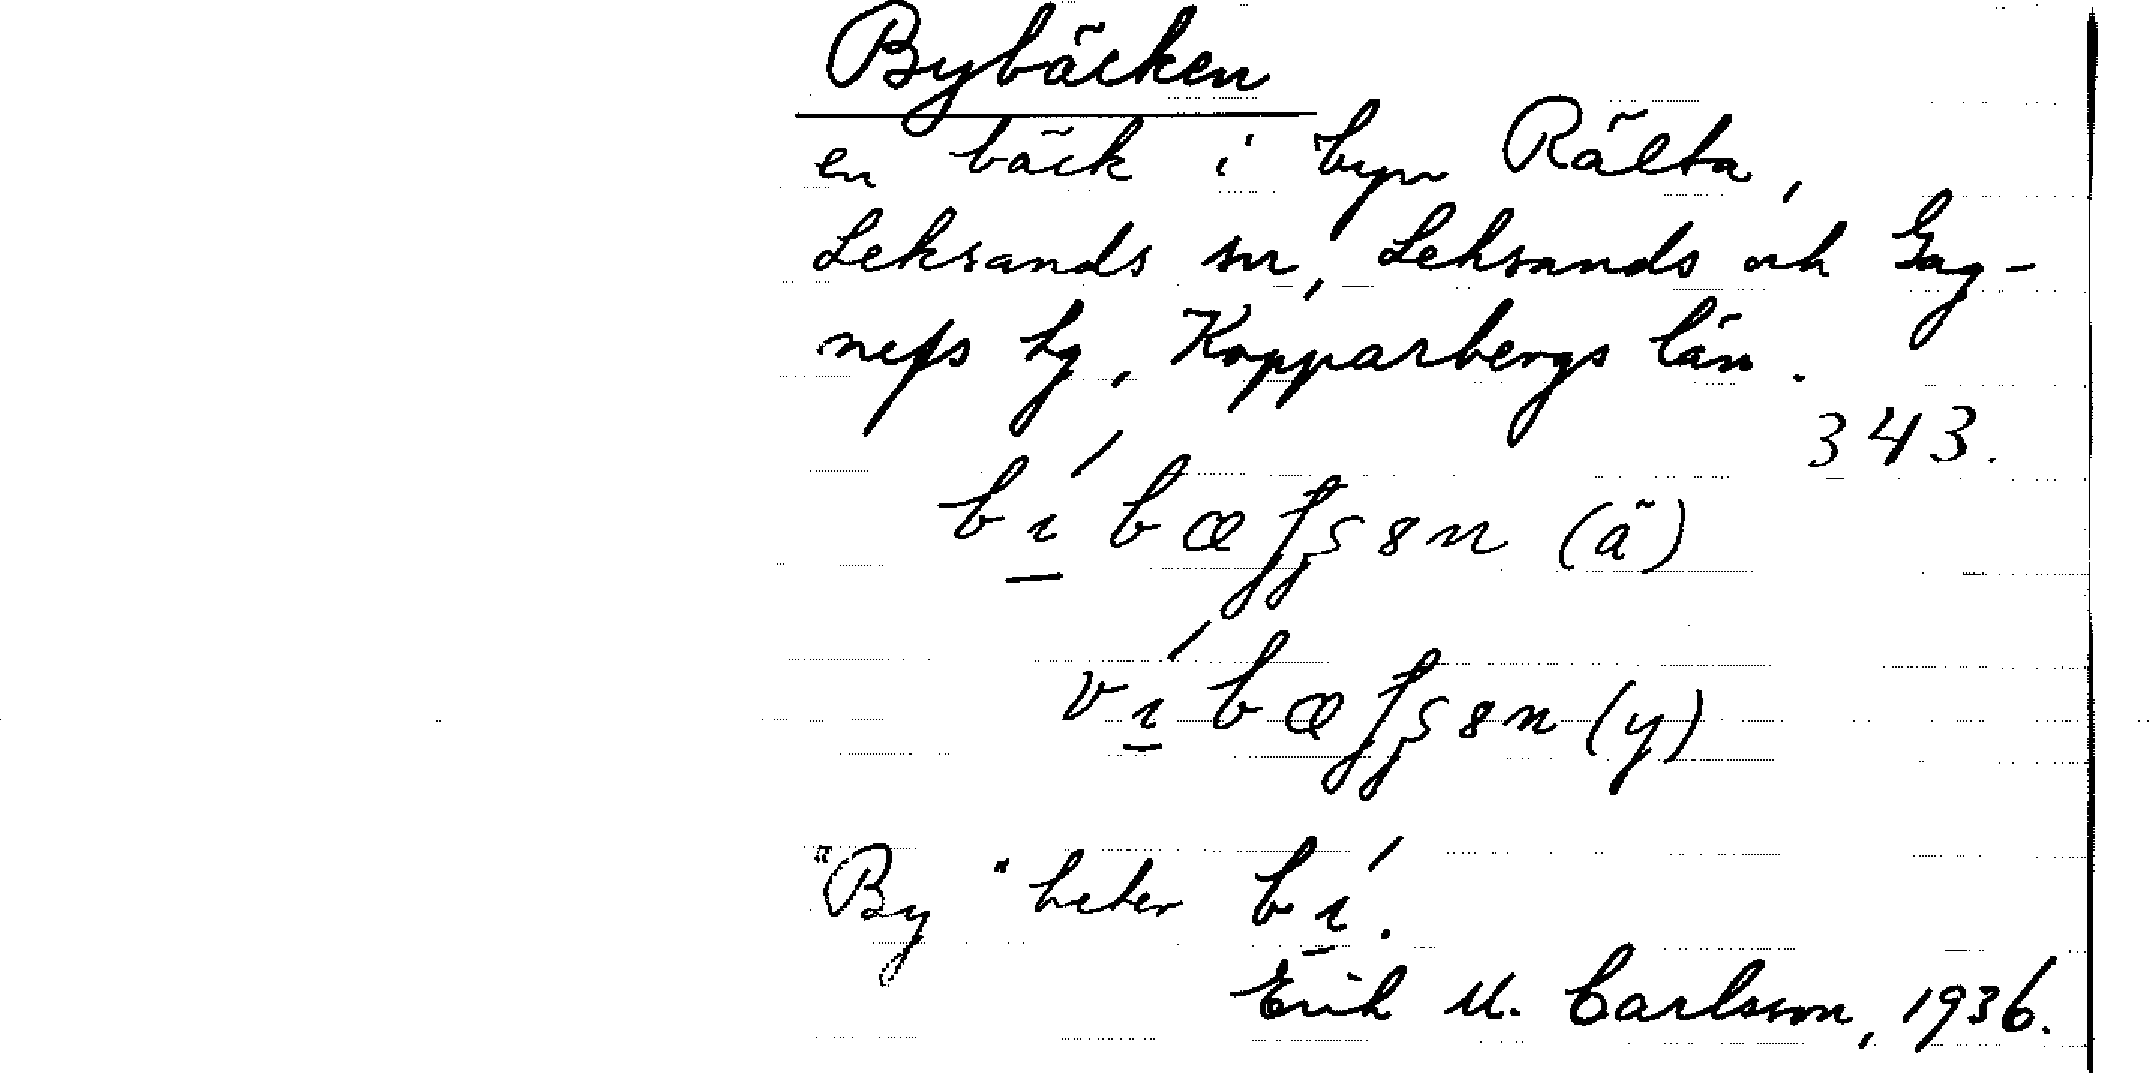 Bybäcken
en bäck i byn Rälta,
Leksands sn, Leksands och Gag-
nefs hg, Kopparbergs län.
343.
(ä)
(y)
"By" heter bı́.
Erik M. Carlsson, 1936.